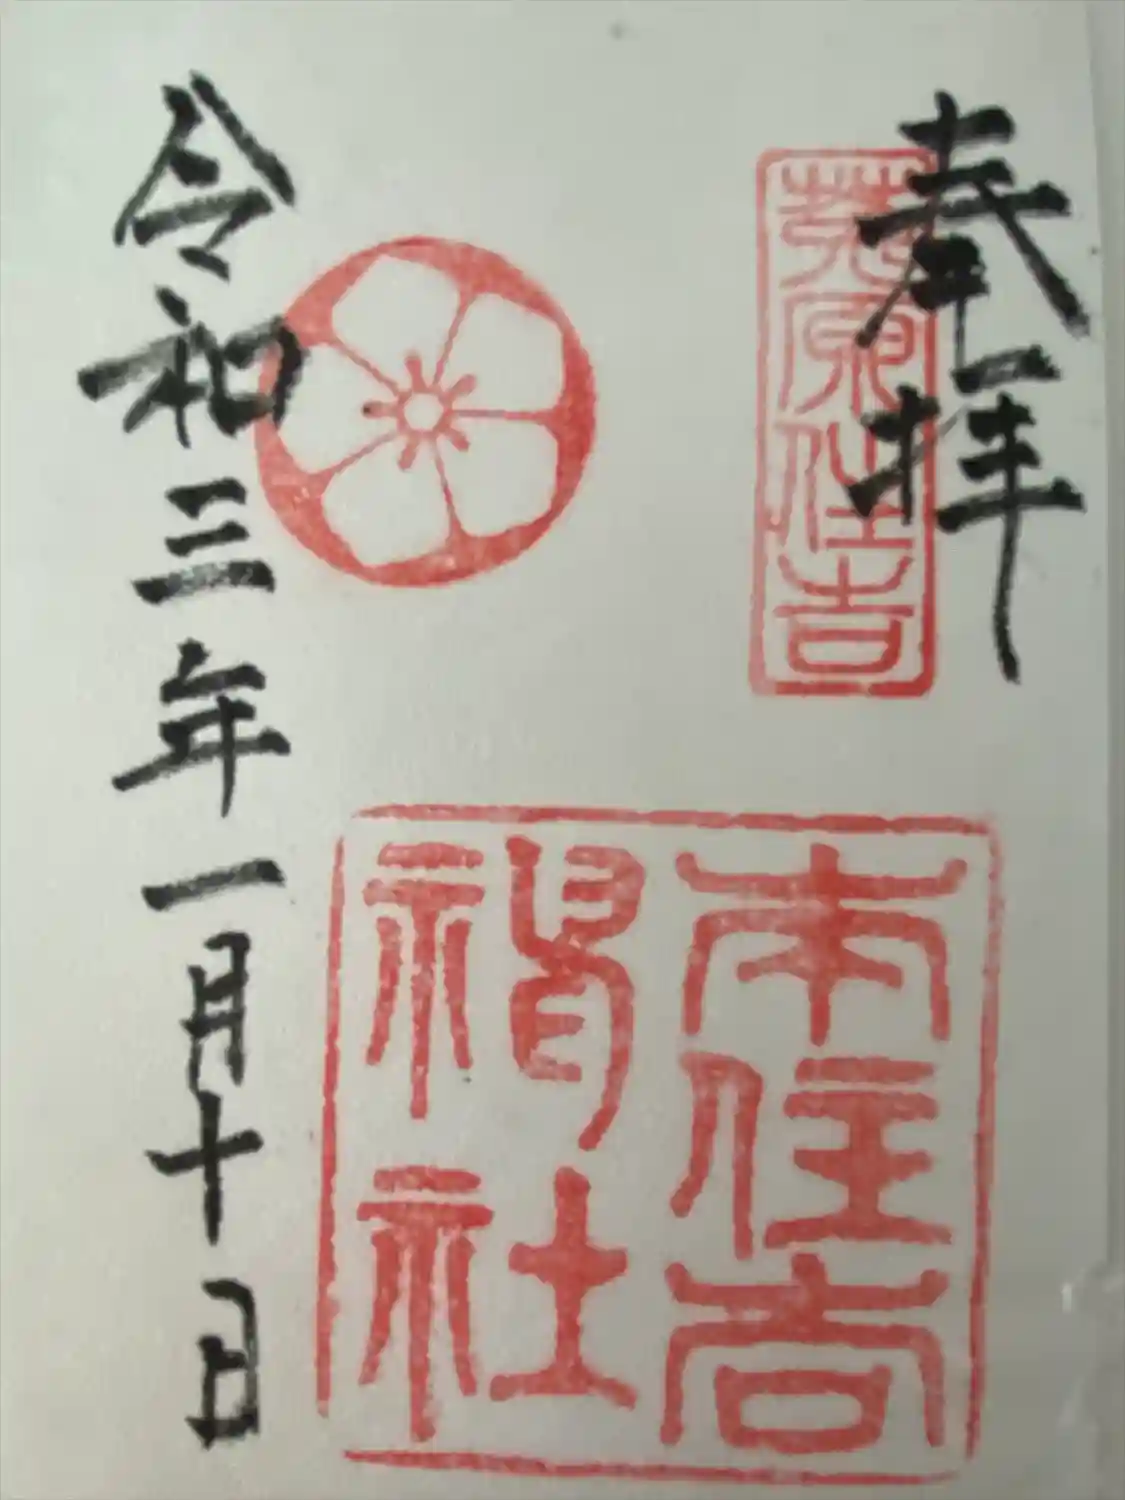 奉拝
莵原住吉
本住吉
神社
令和三年一月十日